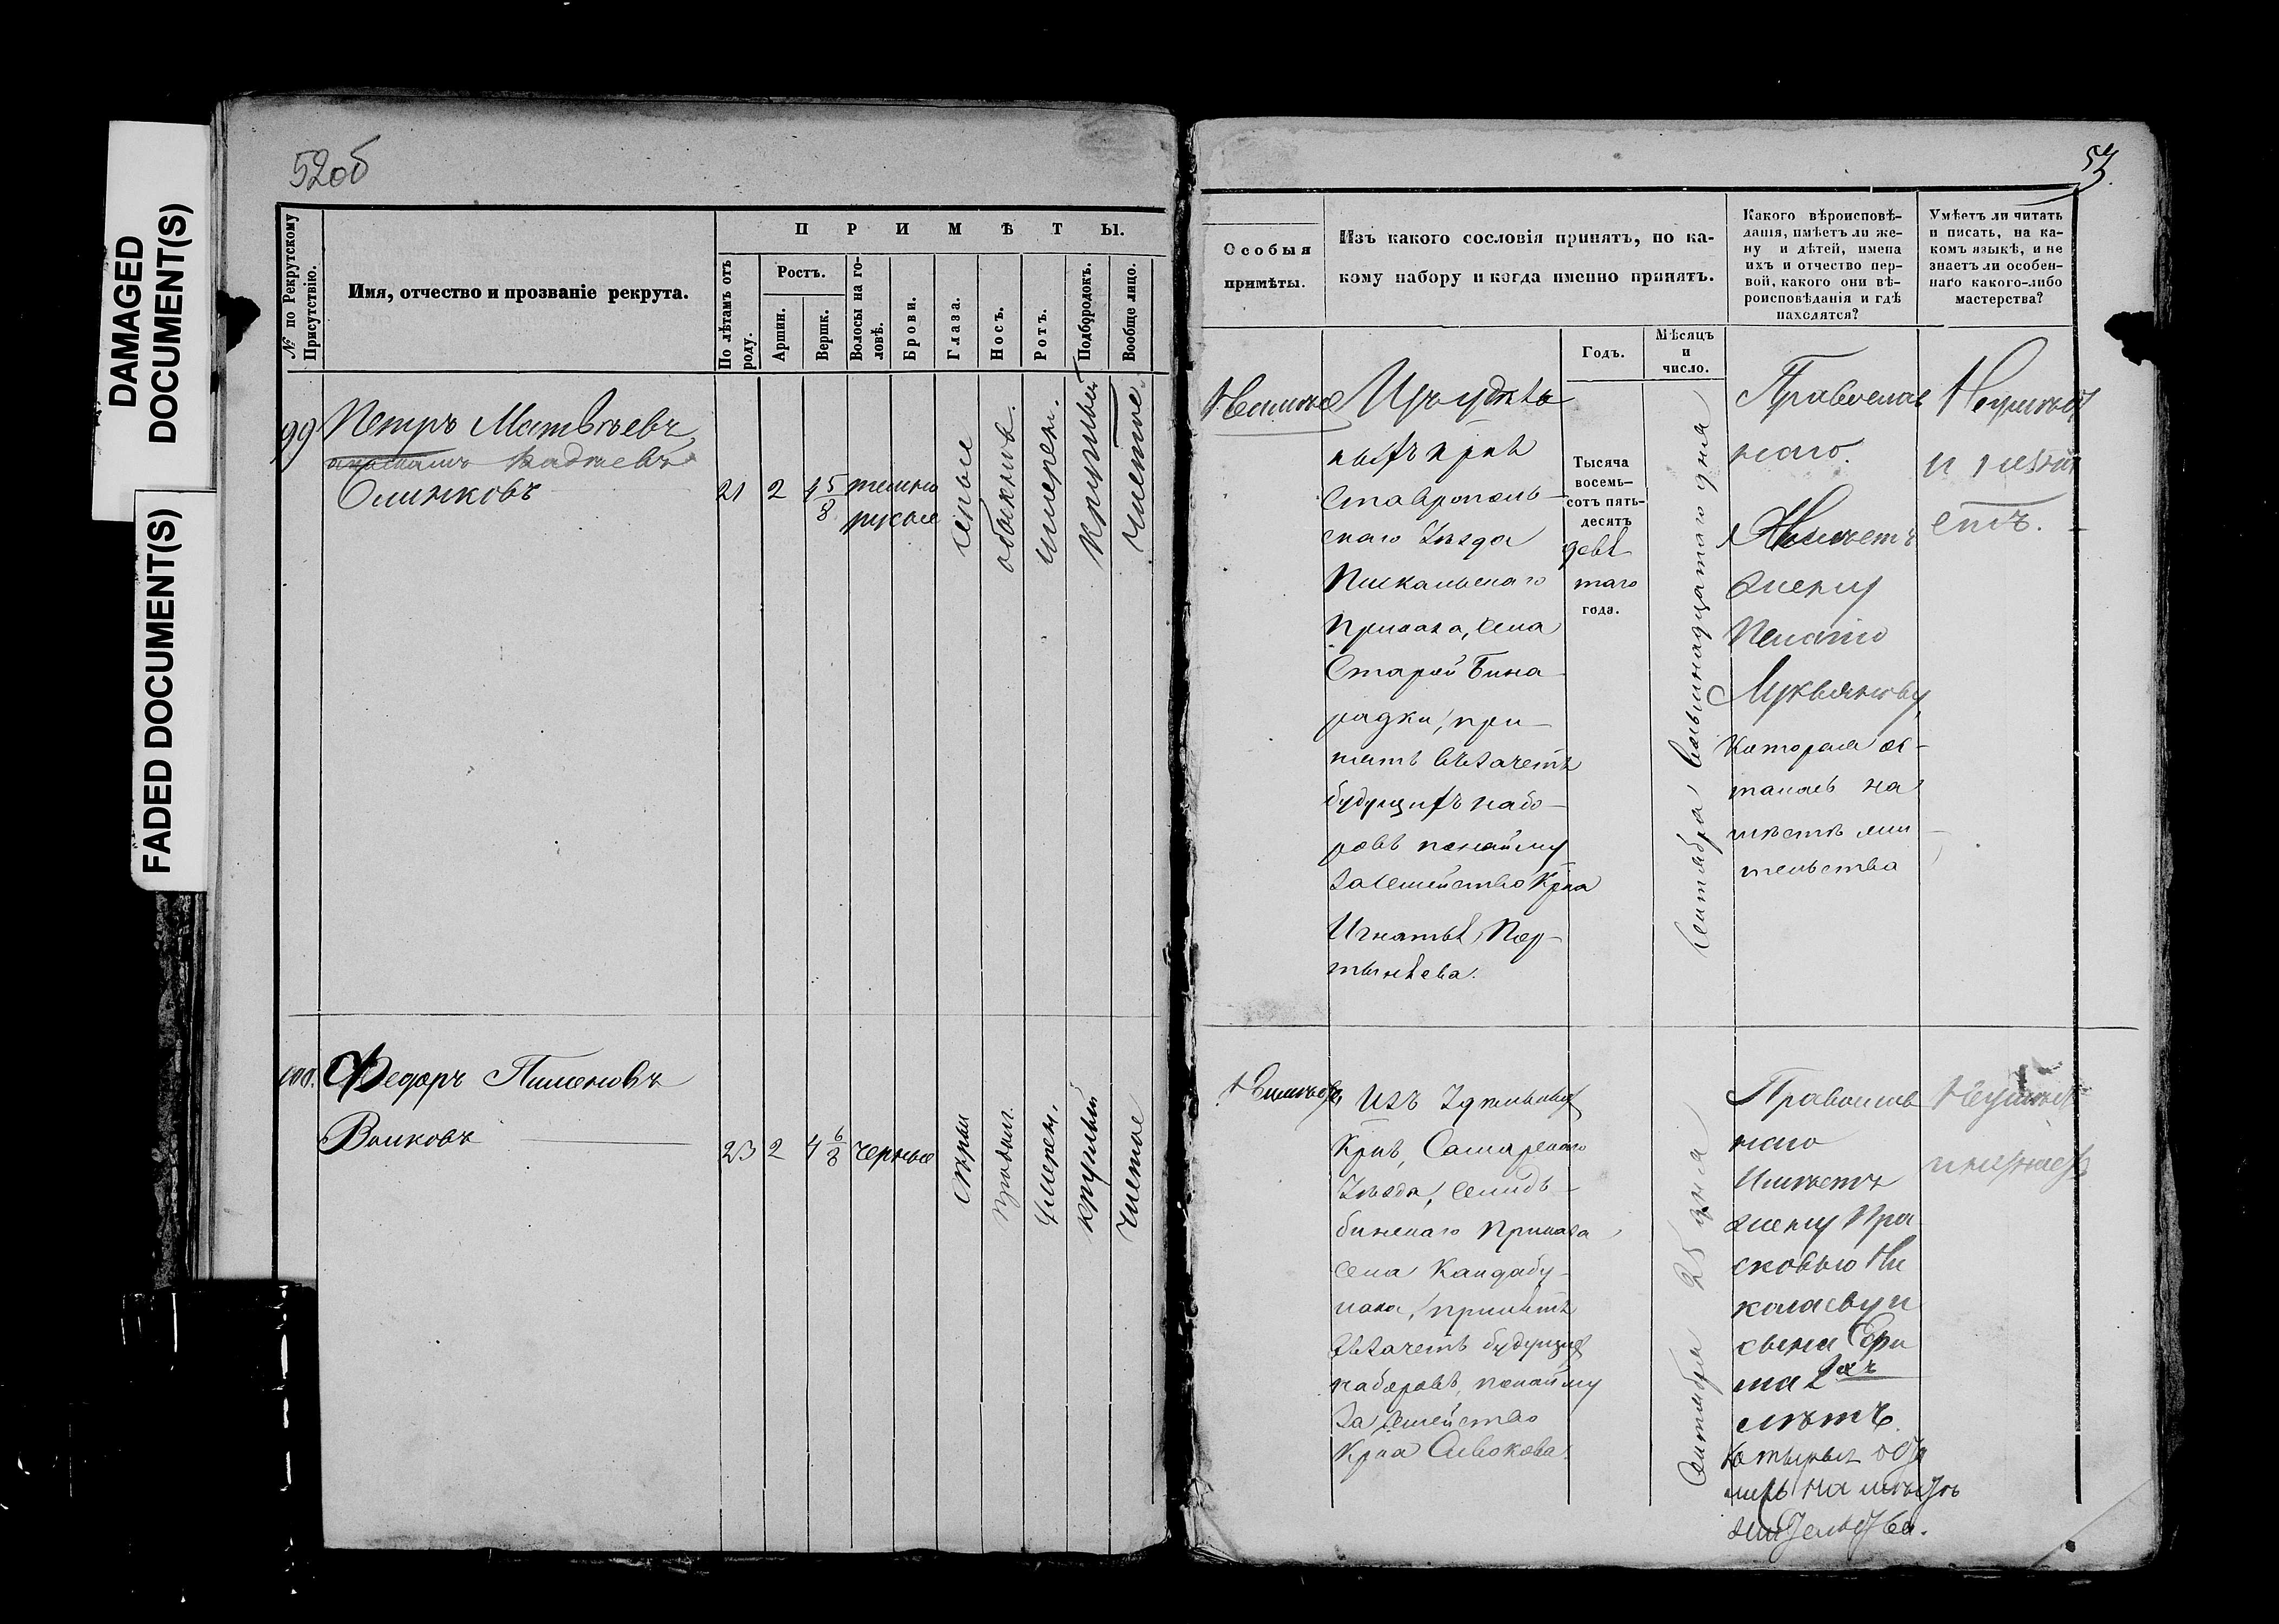 DAMAGED
DOCUMENT(S)
FADED DOCUMENT(S)
52об
№ по Рекрутскому
Присутствію.
Имя, отчество и прозваніе рекрута.
П Р И М Ѣ Т Ы.
По лѣтамъ отъ
роду.
Ростъ.
Аршин.
Вершк.
Волосы на го-
ловѣ.
Брови.
Глаза.
Носъ.
Ротъ.
Подбородокъ.
Вообще лицо.
99
Петръ Матвѣевъ
Слинковъ
21
2
4 5/8
темно
русые
сѣрые
обыкнов.
умерен.
круглый
чистое
100.
Федоръ Пименовъ
Волковъ
23
2
4 6/8
черные
сѣрыя
умерен.
круглый
чистое
53.
Особыя
примѣты.
Изъ какого сословія принятъ, по ка-
кому набору и когда именно принятъ.
Годъ.
Мѣсяцъ
и
число.
Какого вѣроисповѣ-
данія, имѣетъ ли же-
ну и дѣтей, имена
ихъ и отчество пер-
вой, какого они вѣ-
роисповѣданія и гдѣ
находятся?
Умѣетъ ли читать
и писать, на ка-
комъ языкѣ, и не
знаетъ ли особен-
наго какого-либо
мастерства?
Изъ удѣль
ныхъ крнъ
Ставрополь
скаго Уѣзда
Пискальскаго
Приказа, села
Старой Бина
радки, при
нятъ въ зачетъ
будущихъ набо-
ровъ по найму
за семейство Крна
Игнатья Пор-
тынѣева.
Тысяча
восемь-
сотъ пять-
десятъ
девя
таго
года.
Сентября восьмнадцатаго дня
Православ
наго.
Имѣетъ
жену
Пелагію
Лукьянову,
которая ос-
талась на
мѣстѣ жи
тельства
Изъ Удѣльныхъ
Крнъ, Самарскаго
Уѣзда,
бинскаго Приказа
села Кандабу-
лака, принятъ
въ зачетъ будущихъ
наборовъ, по найму
за семейство
Крна
Сентября 25 дня
Православ
наго
Имѣетъ
жену Пра
сковью Ни
колаеву и
сына Ефи
ма 2хъ
лѣтъ.
которые оста
лись на мѣстѣ
жительства.